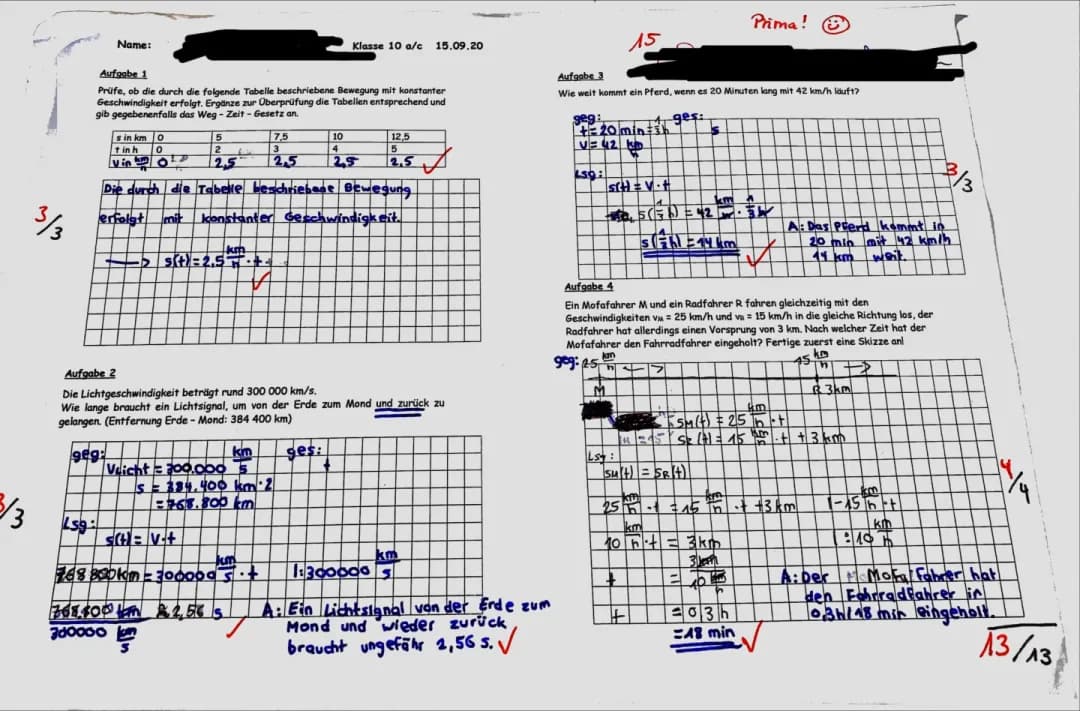 Name:
Klasse 10 a/c 15.09.20
Aufgabe 1
Prüfe, ob die durch die folgende Tabelle beschriebene Bewegung mit konstanter
Geschwindigkeit erfolgt. Ergänze zur Überprüfung die Tabellen entsprechend und
gib gegebenenfalls das Weg - Zeit - Gesetz an.
s in km 0 5 7,5 10 12,5
t in h 0 2 3 4 5
v in km/h 0 2,5 2,5 2,5 2,5
Die durch die Tabelle beschriebene Bewegung
erfolgt mit konstanter Geschwindigkeit.
3/3
→ s(t) = 2,5 km/h · t
Aufgabe 2
Die Lichtgeschwindigkeit beträgt rund 300 000 km/s.
Wie lange braucht ein Lichtsignal, um von der Erde zum Mond und zurück zu
gelangen. (Entfernung Erde - Mond: 384 400 km)
geg: ges:
VLicht = 300.000 km/s t
s = 384.400 km · 2
= 768.800 km
3/3
Lsg:
s(t) = v · t
768 800 km = 300000 km/s · t |: 300000 km/s
768.800 km / 300000 km/s ≈ 2,56 s
A: Ein Lichtsignal von der Erde zum
Mond und wieder zurück
braucht ungefähr 2,56 s.
Prima!
15
Aufgabe 3
Wie weit kommt ein Pferd, wenn es 20 Minuten lang mit 42 km/h läuft?
geg: ges:
t = 20 min = 1/3 h s
v = 42 km/h
Lsg:
s(t) = v · t
3/3
s(1/3 h) = 42 km/h · 1/3 h
s(1/3 h) = 14 km
A: Das Pferd kommt in
20 min mit 42 km/h
14 km weit.
Aufgabe 4
Ein Mofafahrer M und ein Radfahrer R fahren gleichzeitig mit den
Geschwindigkeiten vM = 25 km/h und vR = 15 km/h in die gleiche Richtung los, der
Radfahrer hat allerdings einen Vorsprung von 3 km. Nach welcher Zeit hat der
Mofafahrer den Fahrradfahrer eingeholt? Fertige zuerst eine Skizze an!
geg: 25 km/h → 15 km/h →
M R 3km
sM(t) = 25 km/h · t
sR(t) = 15 km/h · t + 3 km
Lsg:
sM(t) = sR(t)
4/4
25 km/h · t = 15 km/h · t + 3 km |- 15 km/h · t
10 km/h · t = 3 km |: 10 km/h
t = 3 km / 10 km/h
t = 0,3 h
= 18 min
A: Der Mofafahrer hat
den Fahrradfahrer in
0,3h/18 min eingeholt.
13/13